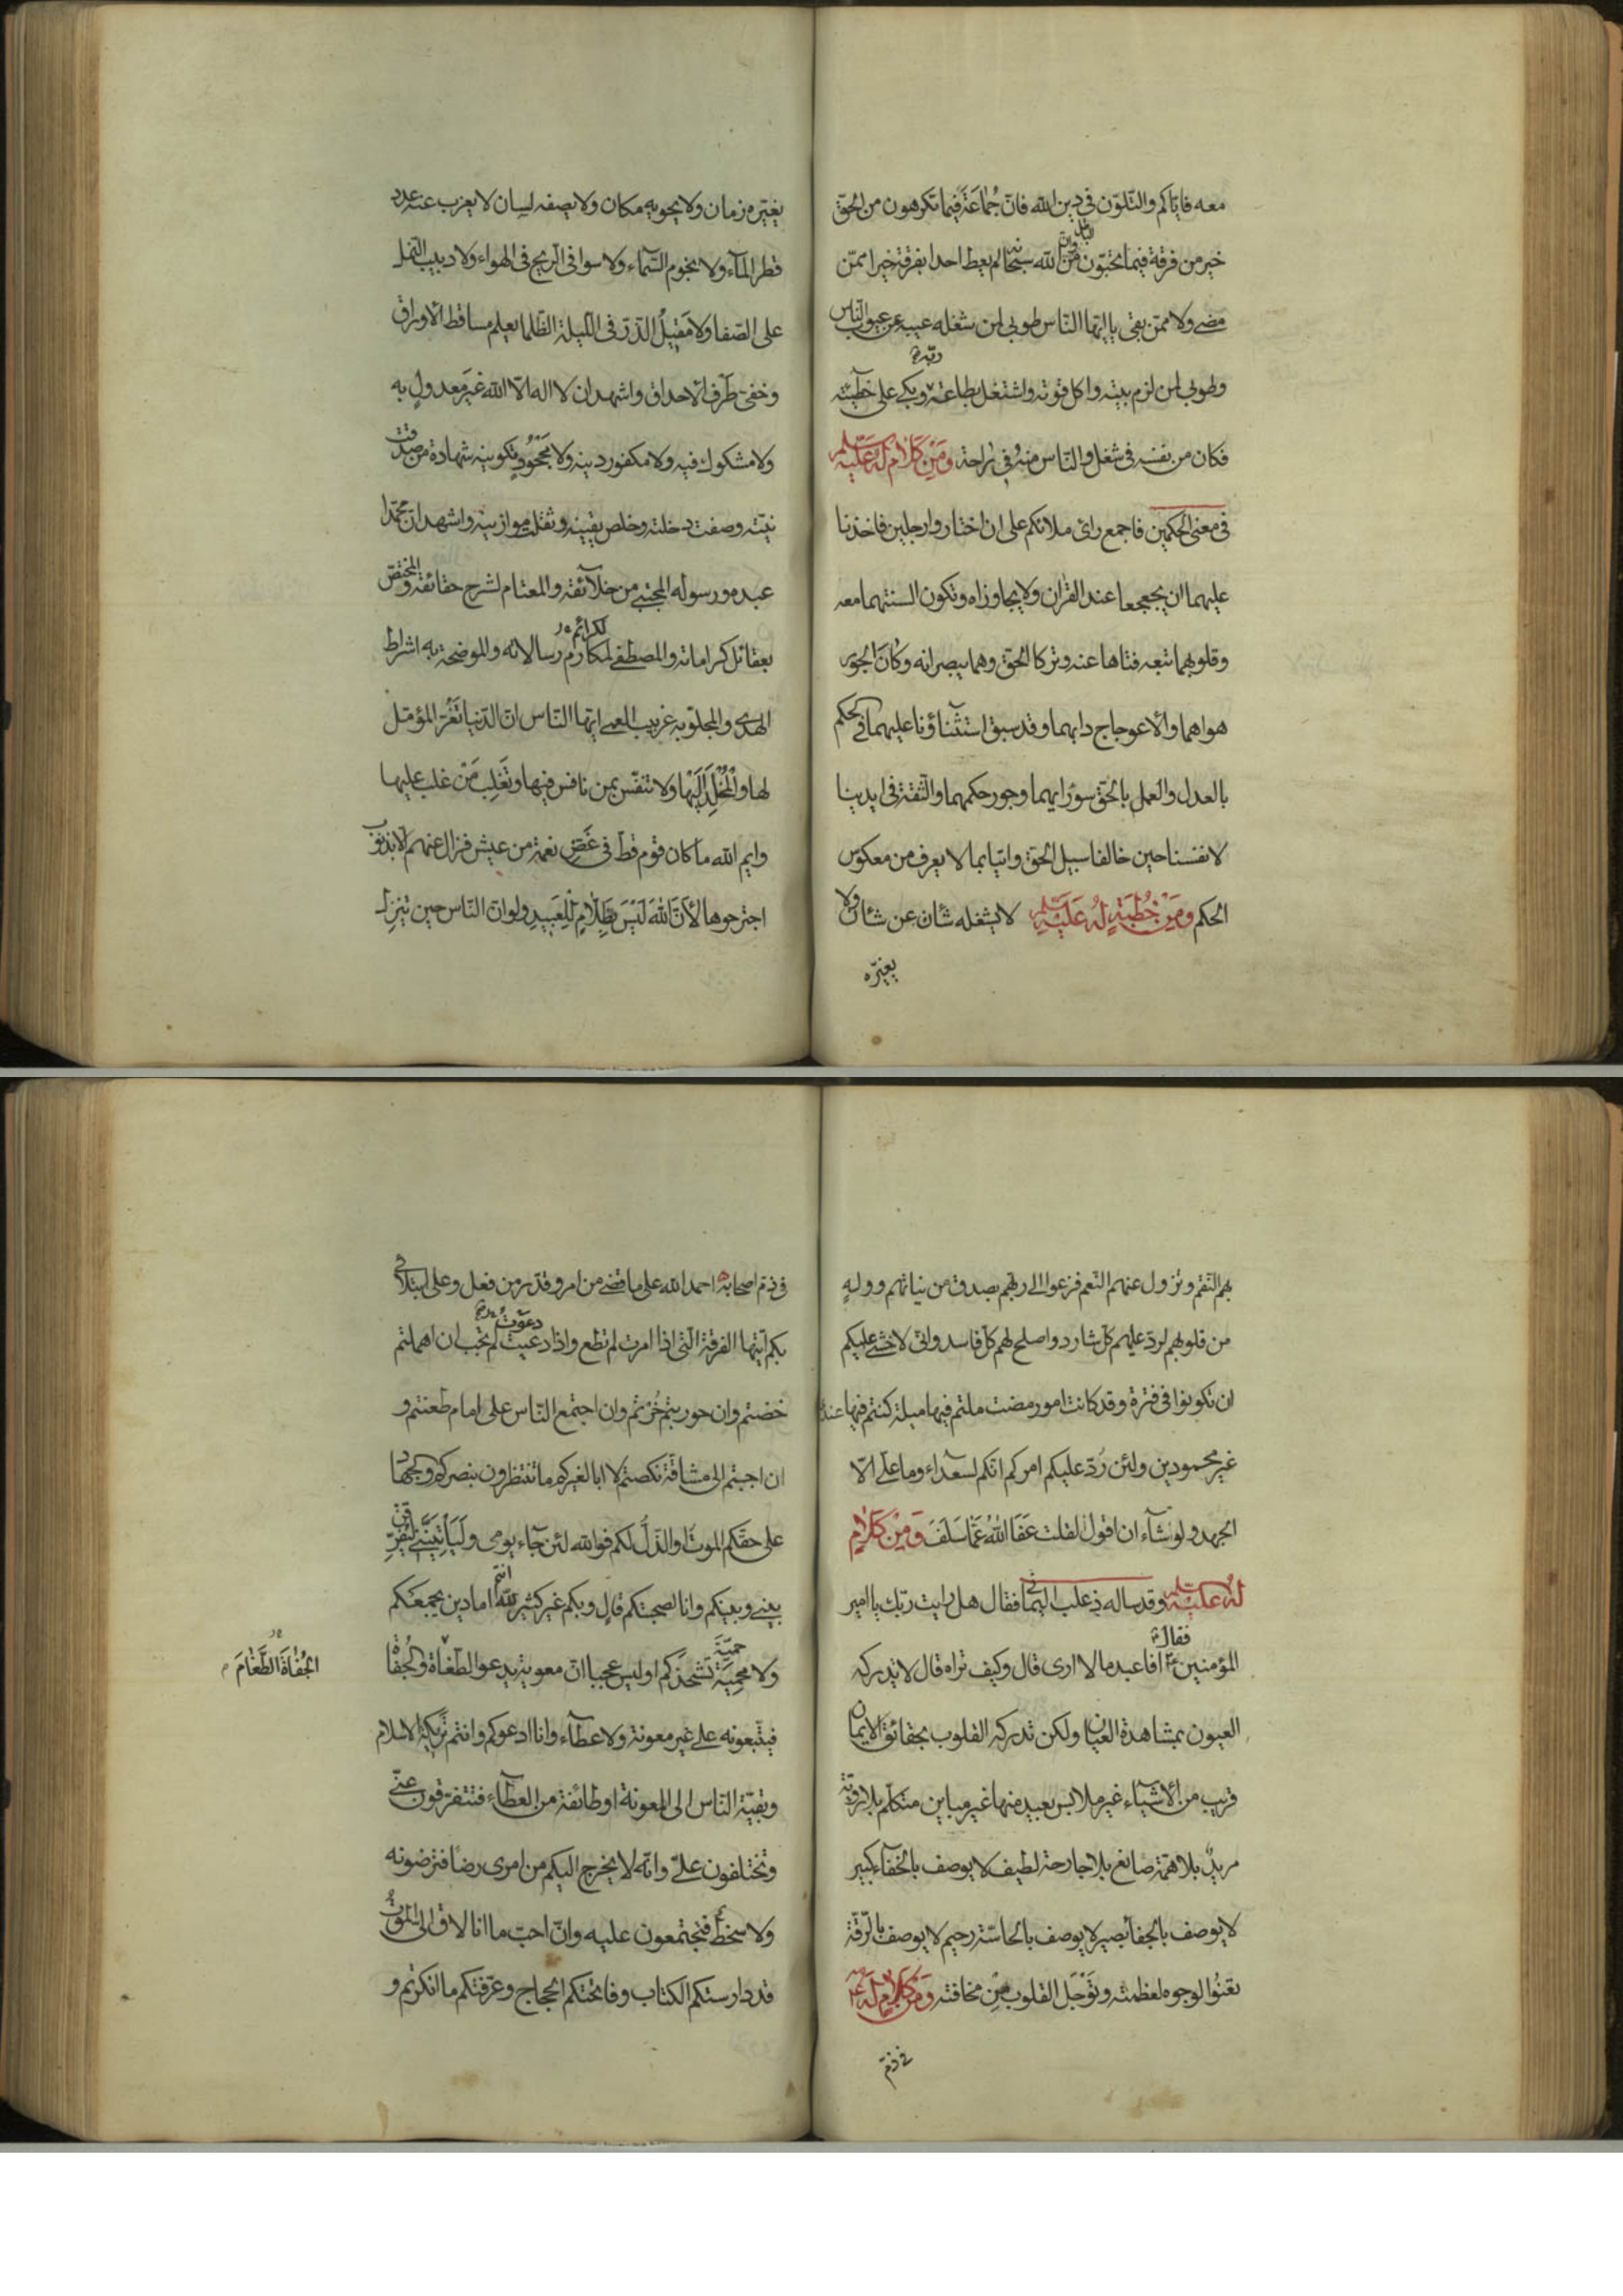 معه فاياكم والتلوّن في دين الله فانّ جماعة فيما تكرهون من الحقّ
خير من فرقة فيما تحبّون من الباطل وانّ الله سبحانه لم يعط احدا بفرقة خيرا ممّن
مضى ولا ممّن بقى يا ايّها النّاس طوبى لمن شغله عيبه عن عيوب النّاس
وطوبى لمن لزم بيته واكل قوته واشتغل بطاعة ربّه وبكى على خطيئته
فكان من نفسه في شغل والنّاس منه في راحة ومن كلام له عليه السلم
في معنى الحكمين فاجمع راى ملائكم على ان اختاروا رجلين فاخذنا
عليهما ان يجعجعا عند القران ولا يجاوزاه وتكون السنتهما معه
وقلوبهما تبعه فتاها عنه وتركا الحقّ وهما يبصرانه وكان الجور
هواهما والاعوجاج دابهما وقد سبق استثناؤنا عليهما في الحكم
بالعدل والعمل بالحقّ سوء رايهما وجور حكمهما والثّقة في ايدينا
لانفسنا حين خالفا سبيل الحقّ واتيا بما لا يعرف من معكوس
الحكم ومن خطبة له عليه السلم لا يشغله شأن عن شأن ولا
يغيّره
يغيّره زمان ولا يحويه مكان ولا يصفه لسان لا يعزب عنه عدد
قطر المآء ولا نجوم السّماء ولا سوافى الرّيح في الهواء ولا دبيب النّمل
على الصّفا ولا مقيل الذّرّ في اللّيلة الظّلما يعلم مساقط الاوراق
وخفىّ طرف الاحداق واشهد ان لا اله الّا الله غير معدول به
ولا مشكوك فيه ولا مكفور دينه ولا مجحود تكوينه شهادة من صدقت
نيّته وصفت دخلته وخلص يقينه وثقلت موازينه واشهد انّ محمّدا
عبده ورسوله المجتبى من خلآئقه والمعتام لشرح حقائقه والمختصّ
بعقائل كراماته والمصطفى لمكارم لكرائم رسالاته والموضحة به اشراط
الهدى والمجلوّ به غربيب العمى ايّها النّاس انّ الدّنيا تغرّ المؤمّل
لها والمخلد اليها ولا تنفّس بمن نافس فيها وتغلب من غلب عليها
وايم الله ما كان قوم قطّ في غضّ نعمة من عيش فزال عنهم الّا بذنوب
اجترحوها لانّ الله ليس بظلّام للعبيد ولو انّ النّاس حين تنزل
بهم النّقم وتزول عنهم النّعم فزعوا الى ربّهم بصدق من نياتهم ووله
من قلوبهم لردّ عليهم كلّ شارد واصلح لهم كلّ فاسد وانّى لاخشى عليكم
ان تكونوا في فترة وقد كانت امور مضت ملتم فيها ميلة كنتم فيها عندى
غير محمودين ولئن ردّ عليكم امركم انّكم لسعداء وما علىّ الّا
الجهد ولو نشآء ان اقول لقلت عفا الله عمّا سلف ومن كلام
له عليه السلم وقد ساله ذعلب اليمانى فقال هل رايت ربّك يا امير
المؤمنين فقال افاعبد ما لا ارى قال وكيف تراه قال لا تدركه
العيون بمشاهدة العيان ولكن تدركه القلوب بحقائق الايمان
قريب من الاشيآء غير ملابس بعيد منها غير مباين متكلّم بلا رويّة
مريد بلا همّة صانع بلا جارحة لطيف لا يوصف بالخفآء كبير
لا يوصف بالجفا بصير لا يوصف بالحاسّة رحيم لا يوصف بالرّقّة
تعنوا الوجوه لعظمته وتوجل القلوب من مخافته ومن كلام له ع
في ذمّ
في ذمّ اصحابه احمد الله على ما قضى من امر وقدّر من فعل وعلى ابتلائى
بكم ايّتها الفرقة الّتى اذا امرت لم تطع واذا دعيت دعوت لم تجب ان اهملتم
خضتم وان حوربتم خرتم وان اجتمع النّاس على امام طعنتم و
ان اجبتم الى مشاقّة نكصتم لا ابا لغيركم ما تنتظرون بنصركم والجهاد
على حقّكم الموت او الذّلّ لكم فوالله لئن جآء يومى ولياتينّى ليفرّقنّ
بينى وبينكم وانا لصحبتكم قال وبكم غير كثير لله انتم اما دين يجمعكم
ولا محمية حميّة تشحذكم اوليس عجبا انّ معوية يدعو الطّغاة والجفاة
الجفاة الطّغام
فيتّبعونه على غير معونة ولا عطآء وانا ادعوكم وانتم تريكة الاسلام
وبقيّة النّاس الى المعونة او طائفة من العطآء فتتفرّقون عنّى
وتختلفون علىّ وانّه لا يخرج اليكم من امرى رضا فترضونه
ولا سخط فتجتمعون عليه وانّ احبّ ما انا لاق الىّ الموت
قد دارستكم الكتاب وفاتحتكم الحجاج وعرّفتكم ما انكرتم و